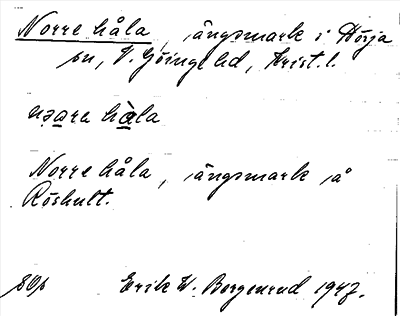 Norre håla, ängsmark i Hörja
sn, V. Göinge hd, Krist. l.
nɔara håla
Norre håla, ängsmark å
Röshult.
Erik W. Bergenrud 1947.